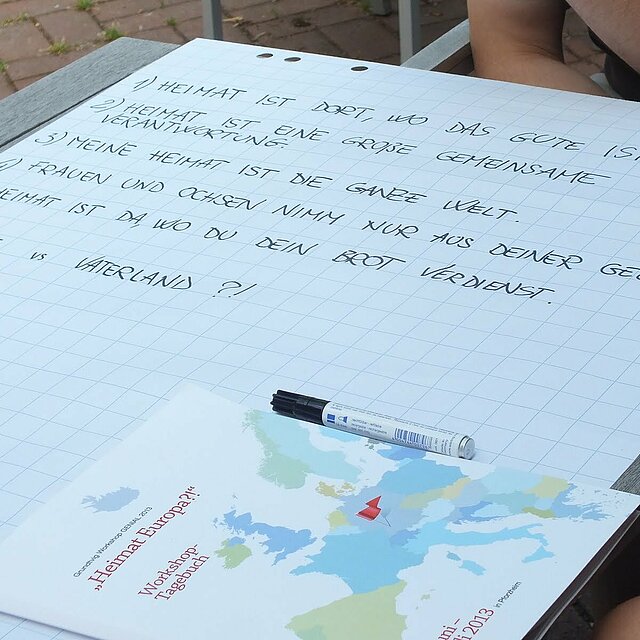 1) HEIMAT IST DORT, WO DAS GUTE IS
2) HEIMAT IST EINE GROßE GEMEINSAME
VERANTWORTUNG.
3) MEINE HEIMAT IST DIE GANZE WELT.
4) FRAUEN UND OCHSEN NIMM NUR AUS DEINER GE
HEIMAT IST DA, WO DU DEIN BROT VERDIENST.
VS VATERLAND ?!
Grundtvig Workshop GENIAL 2013
„Heimat Europa?!“
Workshop-
Tagebuch
ni –
i 2013 in Pforzheim